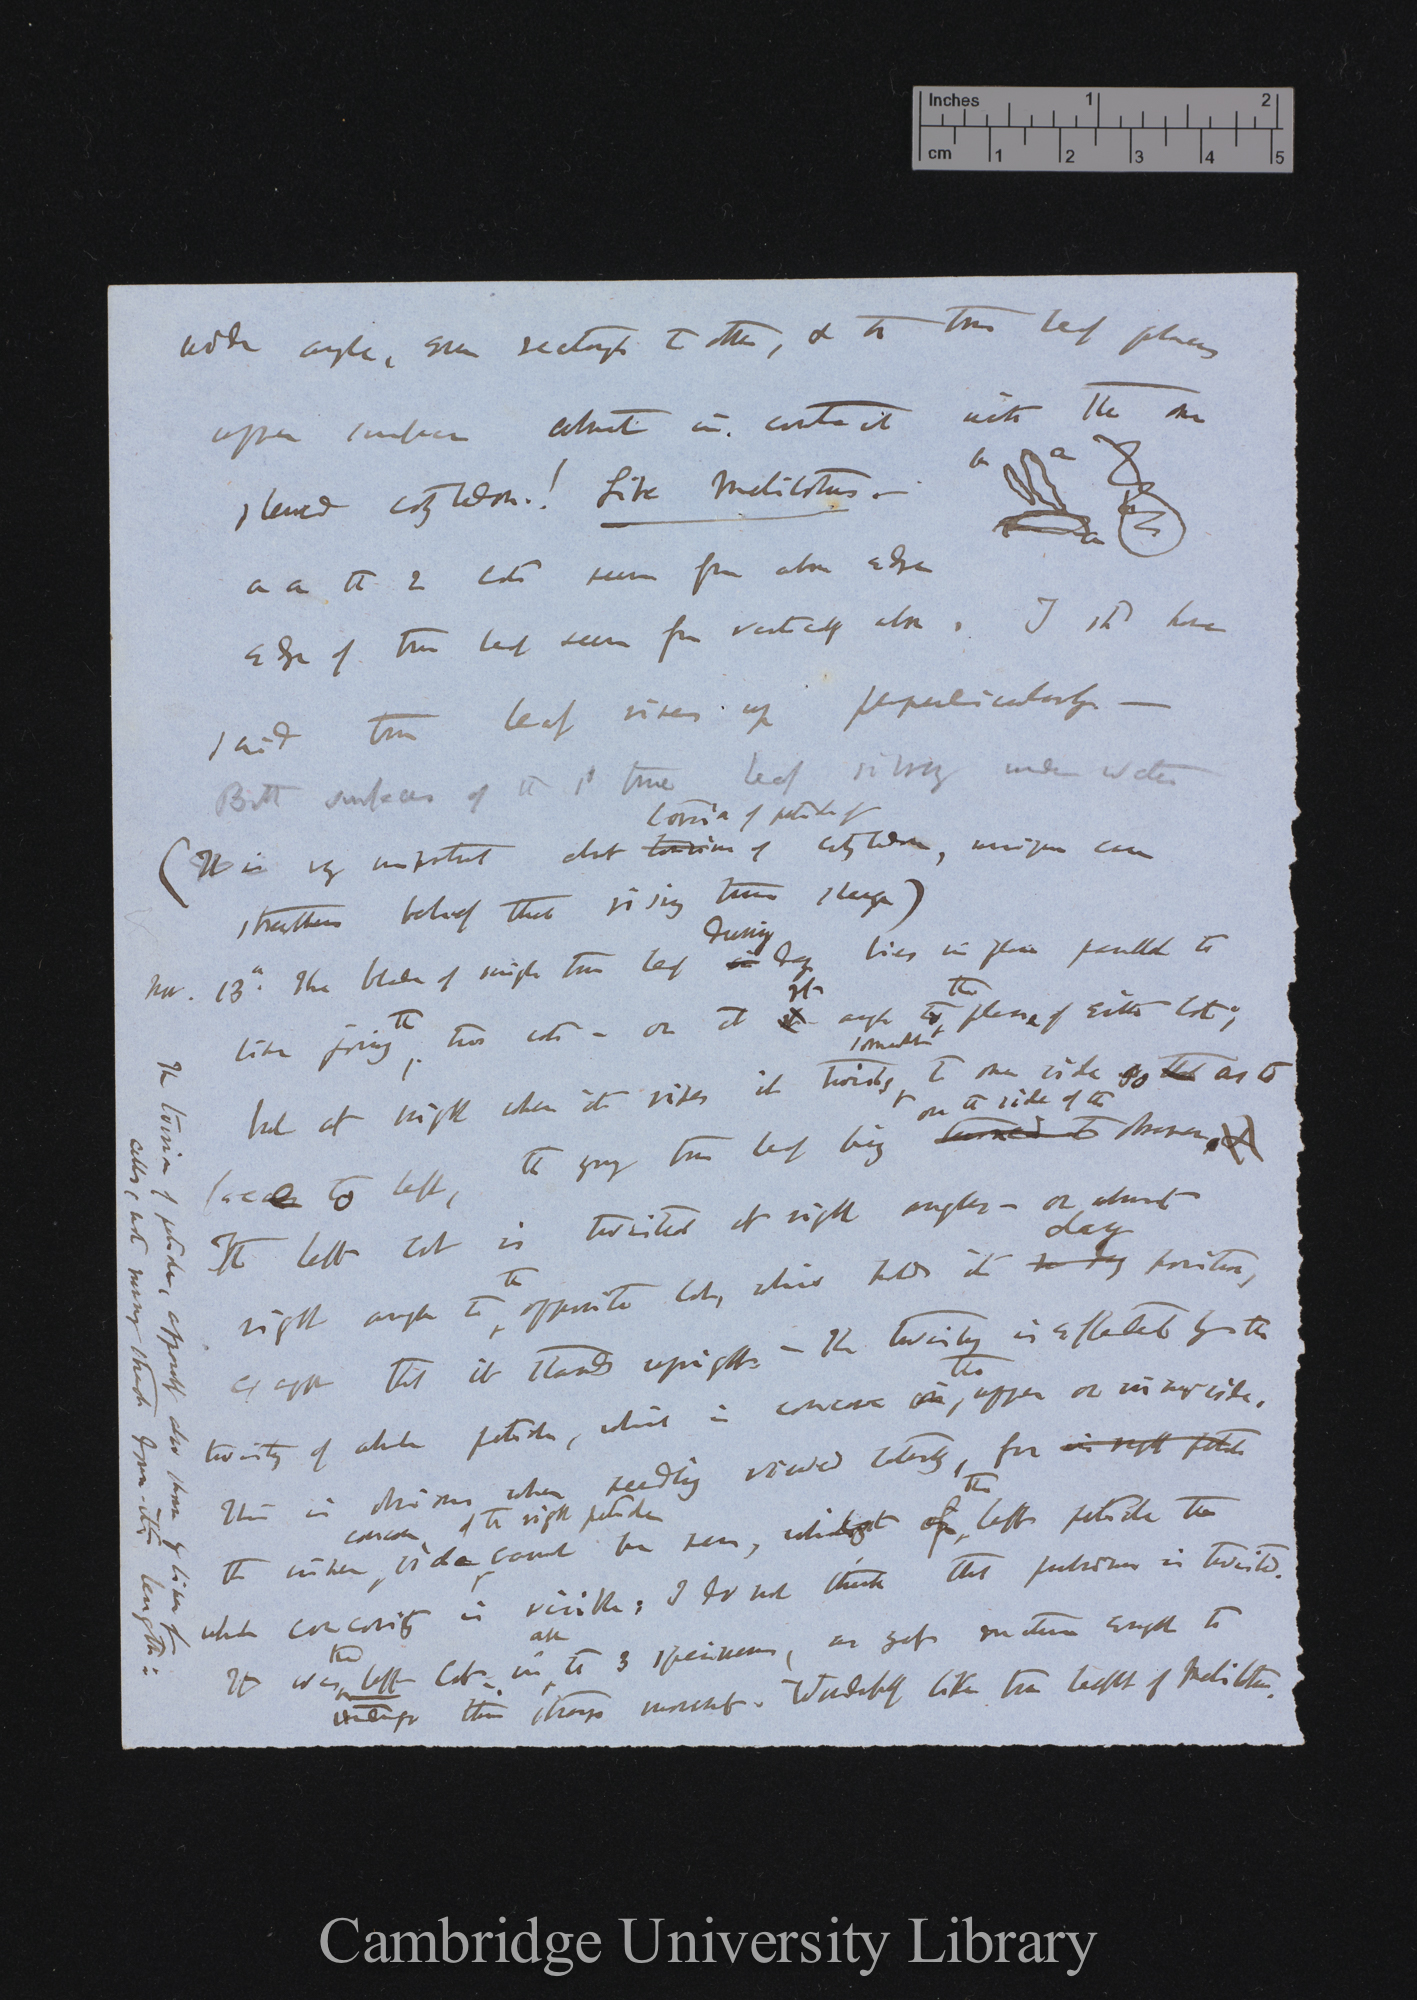 Inches 1 2
cm 1 2 3 4 5
wide angle, even rectangle to other, & the true leaf places
upper surface almost in contact with the one
placed cotyledon! Like Melilotus —
a a
a
a a the 2 cots seen from above edge
edge of true leaf seen from vertically above. I shd have
said true leaf rises up perpendicularly —
Both surfaces of the 1st true leaf silvery under water
torsion of petiole of
(It is very important about torsion of cotyledon, unique case
strengthens belief that rising true sleep)
during
Nov. 13th The blade of single true leaf in day lies in plane parallel to
line joining the two cots — or at rt angle to the plane of either cot;
somewhat
but at night when it rises it twists to one side so that as to
on the side of the
face to left, the young true leaf being turned to observer, &
The left cot is twisted at right angles — or almost
day
right angle to the opposite cot, which holds its position,
except that it stands upright. — The twisting is effected by the
twisting of whole petiole, which is concave on the upper or inner side.
This is obvious when seedling viewed laterally, for in right petiole
concave of the right petiole
the inner side cannot be seen, whilst of the left petiole the
whole concavity is visible: I do not think that pulvinus is twisted.
all
It was the left cot. in the 3 specimens,
this strange movement. Wonderfully like true leaflet of Melilotus.
The torsion of petiole, apparently also shown by lines of
cells, not running straight down its length:
Cambridge University Library